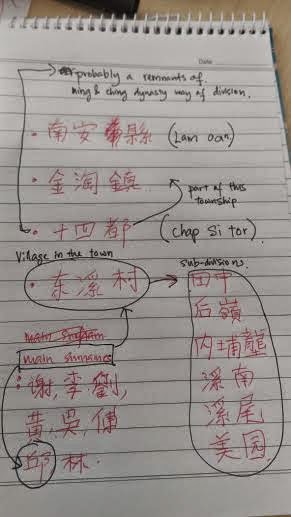 Date
probably a remnants of
ming & ching dynasty way of division.
• 南安縣 (Lam oan)
• 金淘鎮
part of this
township
• 十四都 (Chap Si tor)
Village in the town
• 东溪村
sub-divisions
田中
后嶺
内埔壟
溪南
溪尾
美园
main surnames
谢, 李, 劉,
黄, 吳, 傅
邱 林